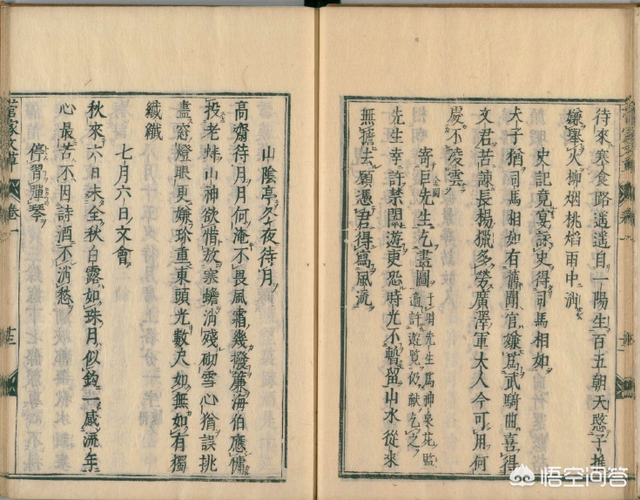 待來寒食路遙遙自一陽生百五朝天愍子推
嫌舉火柳烟桃焰雨中消
史記竟宴詠史得司馬相如
犬子猶司馬相如有舊圖官嫌爲武騎曲喜得
文君苦諫長楊獵多勞廣澤軍大人今可用何
處不凌雲
寄巨先生乞畫圖
先生幸許禁闈遊更恐時光不暫留山水從來
無擔去願憑君得寫風流
山陰亭冬夜待月
高齋待月月何淹不畏風霜幾撥簾海伯應慵
投老蚌山神欲惜放寒蟾消殘砌雪心猶誤挑
盡窓燈眼更嫌珎重東頭光數尺如無如有獨
纖纖
七月六日文會
秋來六日未全秋白露如珠月似鈎一感流年
心最苦不因詩酒不消愁
停習彈琴
菅家文草 卷一
悟空问答